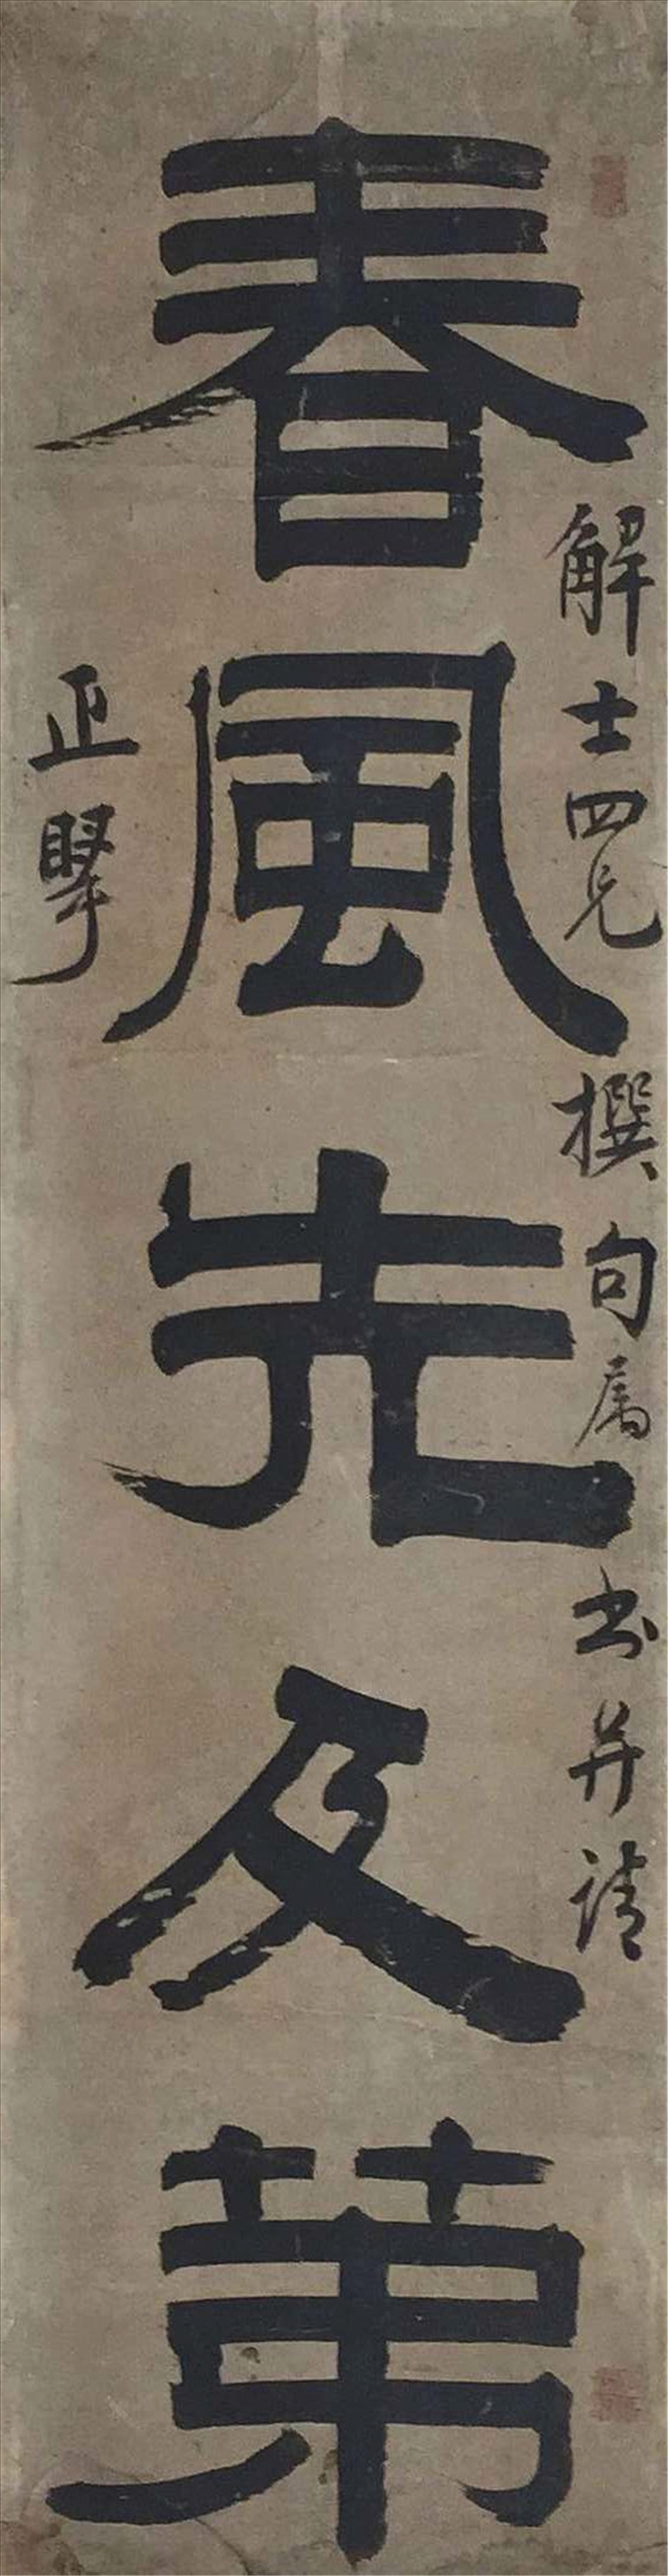 解士四兄撰句属书并请
春風先及第
正擘